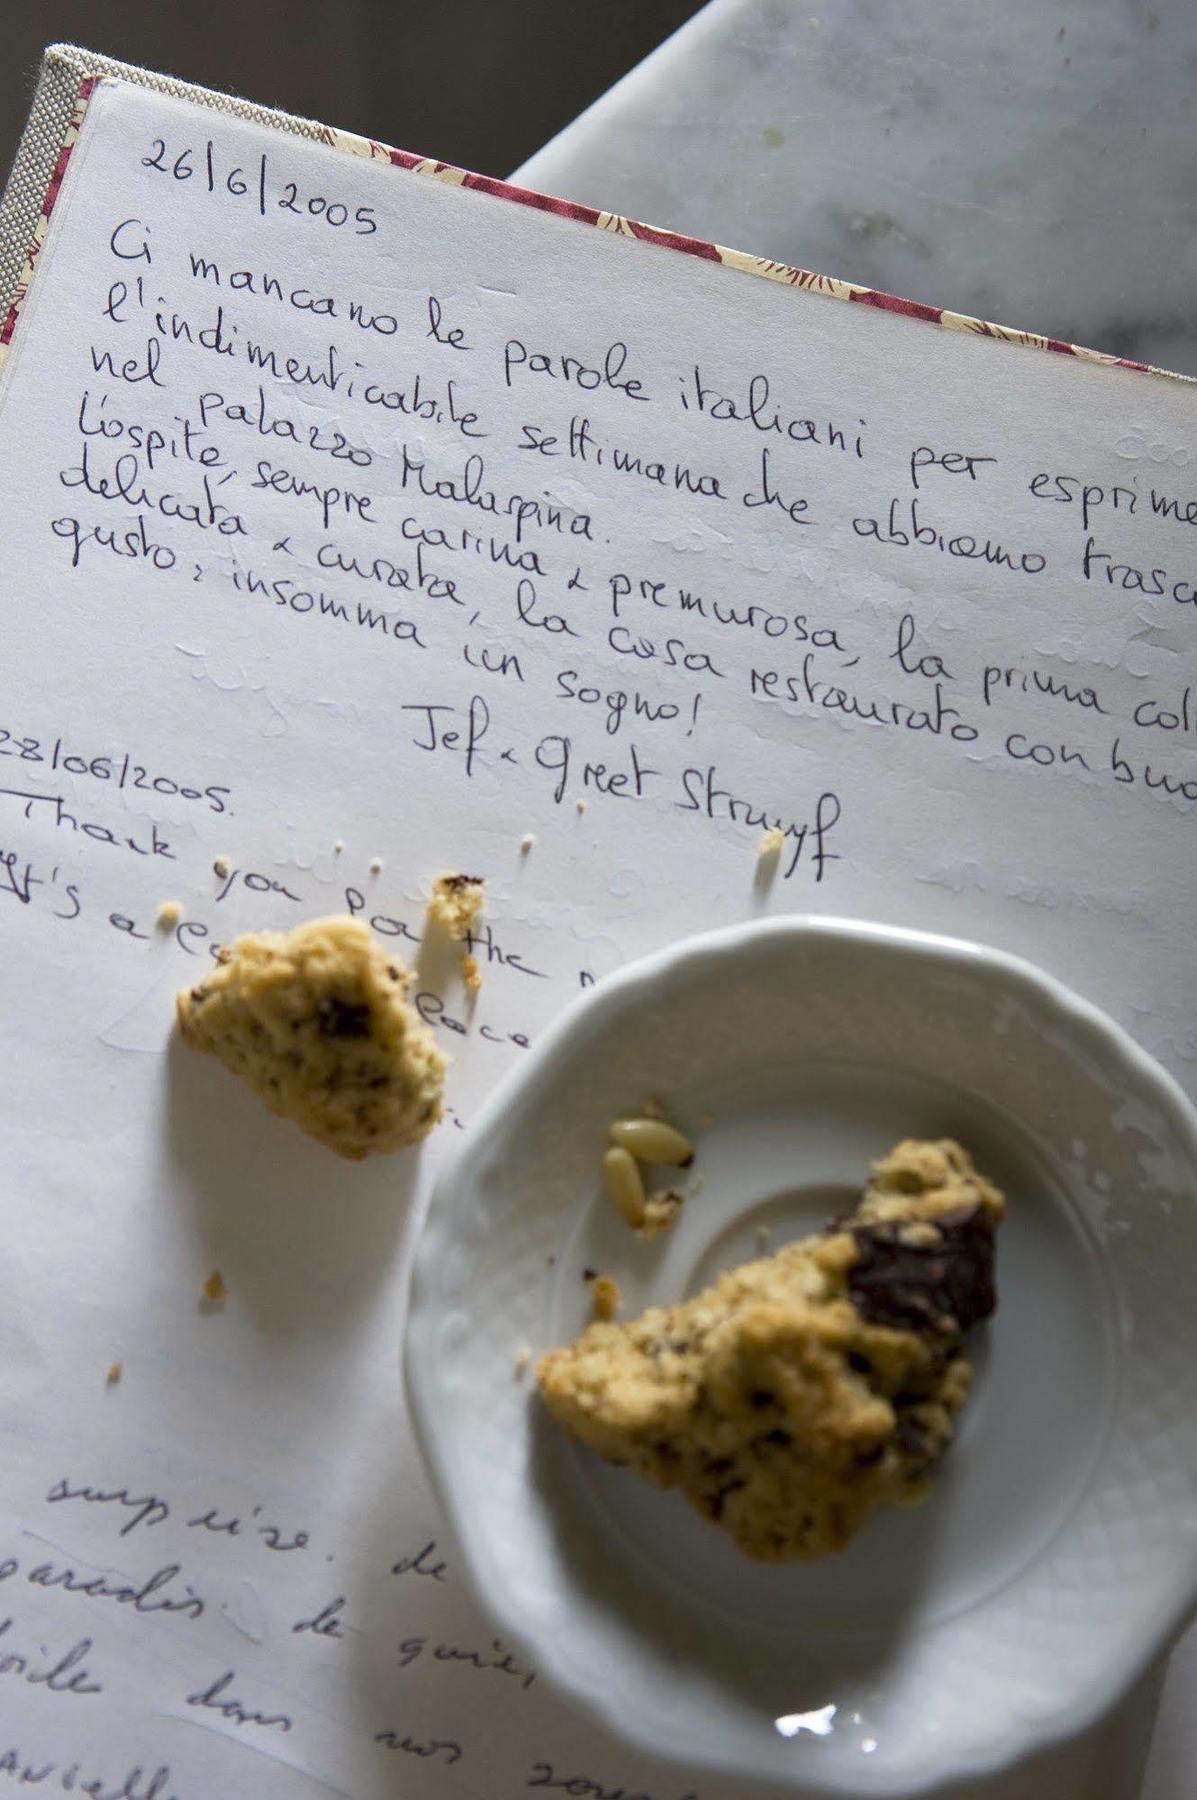 26/6/2005
Ci mancano le parole italiani per esprime
l'indimenticabile settimana che abbiamo trasc
nel palazzo Malaspina.
L'ospite, sempre carina & premurosa, la prima col
delicata & curata, la casa restaurato con buo
gusto, insomma un sogno!
Jef & Greet Struyf
28/06/2005.
Thank you for the
It's a
surprise. de
paradis. le
dans nos